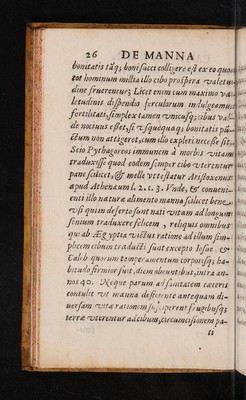 26 DE MANNA
bonitatis tãq; boni succi colligere est ex eo quod
tot hominum millia illo cibo prospera valetu-
dine fruerentur; Licet enim cum maximo va-
letudinis dispendio ferculorum indulgeamus
fertilitati, simplex tamen vnicusq; cibus val-
de nocuus esset, si vsquequaq; bonitatis pũ-
ctum non attigeret, cum illo expleri necesse sit
Scio Pythagoreos immunem à morbis vitam
traduxisse quod eodem semper cibo vterentur
pane scilicet, & melle vt testatur Aristoxenus
apud Athenaum l. 2. c. 3. Vnde, & conueni-
enti illo natura alimento manna scilicet bene
vsi quin deserto sunt nati vitam ad longum
senium traduxere felicem, reliquis omnibus
qui ab Ægyptia victus ratione ad illum sim-
plicem cibum traducti sunt excepto Iosue, &
Caleb quorum temperamentum corporisq; ha-
bitudo firmior fuit, diem abeuntibus, intra an-
nos 40. Neque parum ad sanitatem cæteris
contulit vt manna desinente antequam di-
uersam vitæ rationem susciperent frugibusq;
terra vterentur ad cibum, circumcisionem pa-